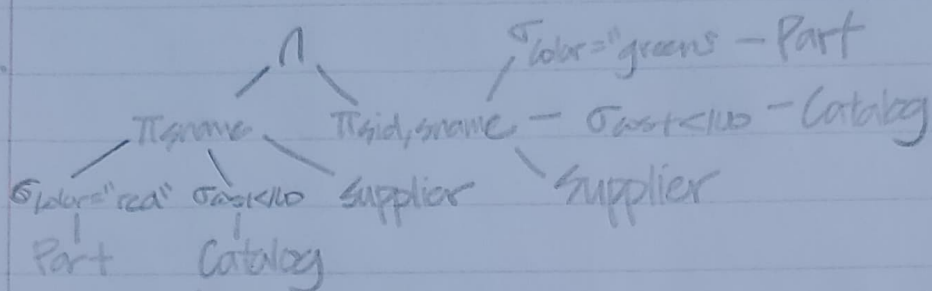 ∩
σcolor="green" - Part
πsname πsid,sname - σcost<100 - Catalog
σcolor="red" σcost<100 Supplier Supplier
Part Catalog